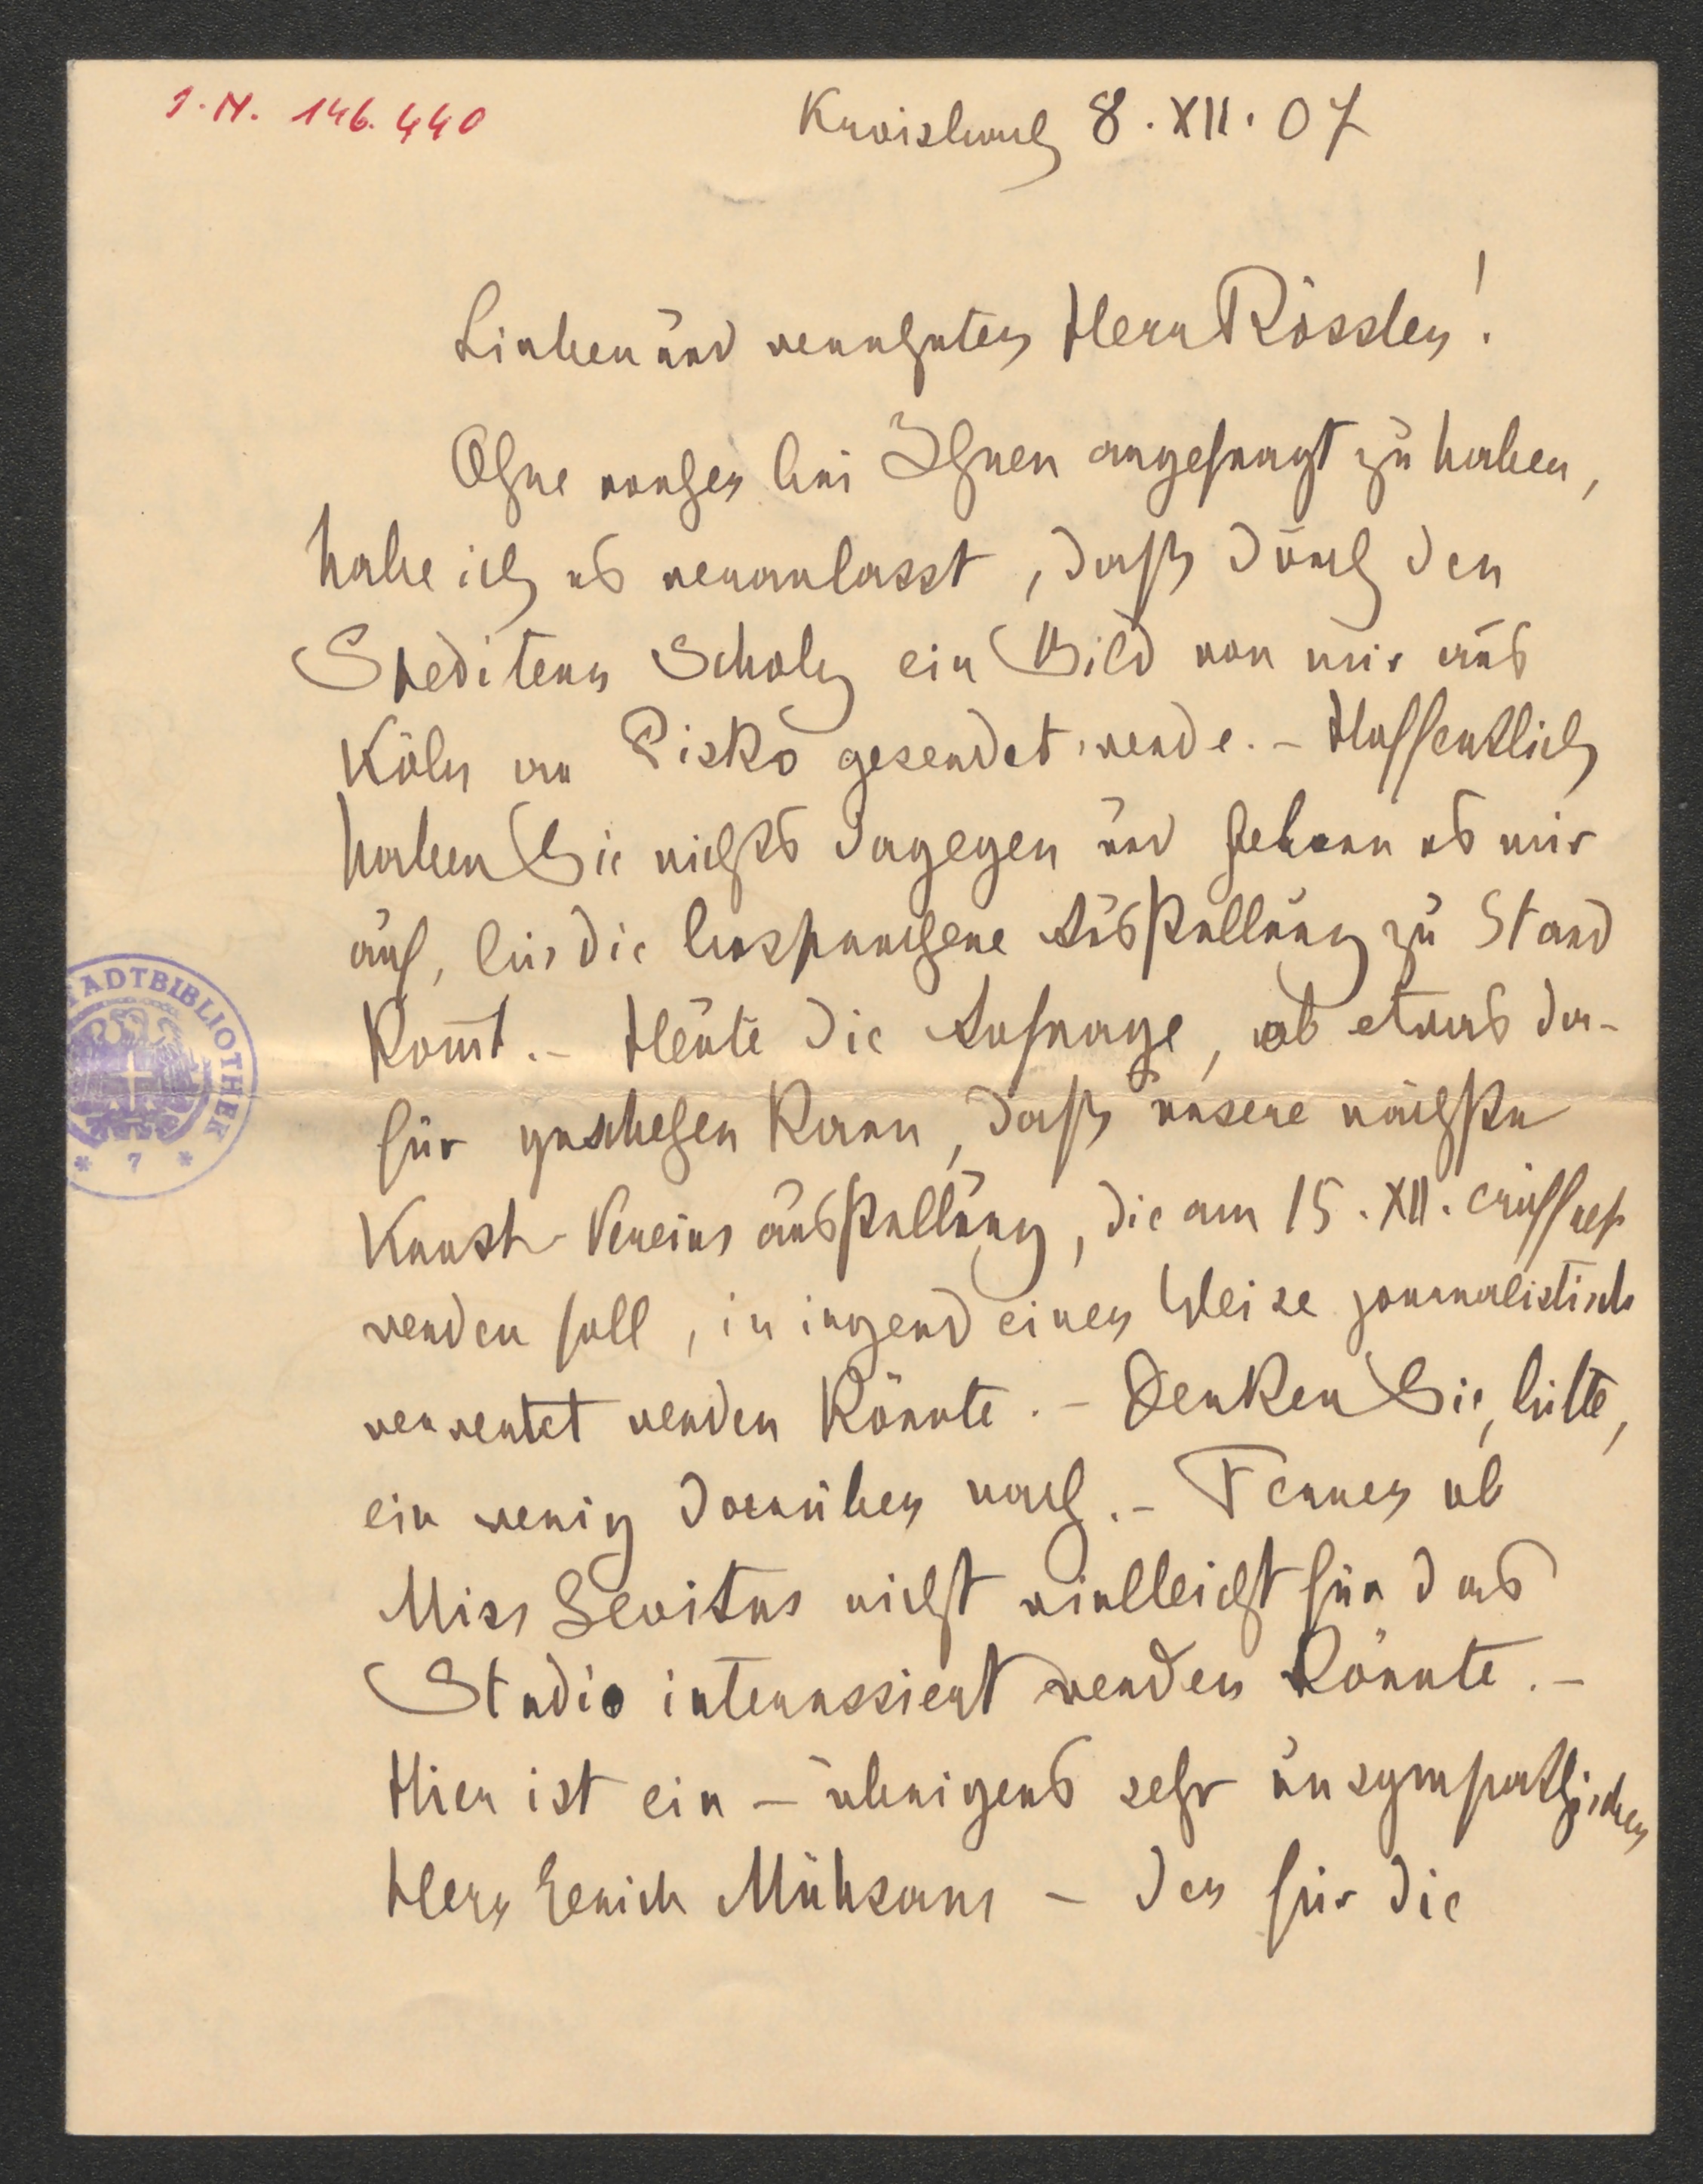 I.N. 146.440
Kreisbach 8.XII.07
Lieber und verehrter Herr Rössler!
Ohne vorher bei Ihnen angefragt zu haben,
habe ich es veranlasst, daß durch den
Spediteur Scholz ein Bild von mir aus
Köln an Pisko gesendet werde. - Hoffentlich
haben Sie nichts dagegen und heben es mir
auf, bis die besprochene Ausstellung zu Stand
kom̄t. - Heute die Anfrage, ob etwas da-
für geschehen kann, daß unsere nächste
Kunst-Vereinsausstellung, die am 15.XII. eröffnet
werden soll, in irgend einer Weise journalistisch
verwertet werden könnte. - Denken Sie, bitte,
ein wenig darüber nach. - Ferner ob
Miss Levitus nicht vielleicht für das
Studio interessiert werden könnte. -
Hier ist ein - übrigens sehr unsympathischer
Herr Erich Mühsam - der für die
STADTBIBLIOTHEK
* 7 *